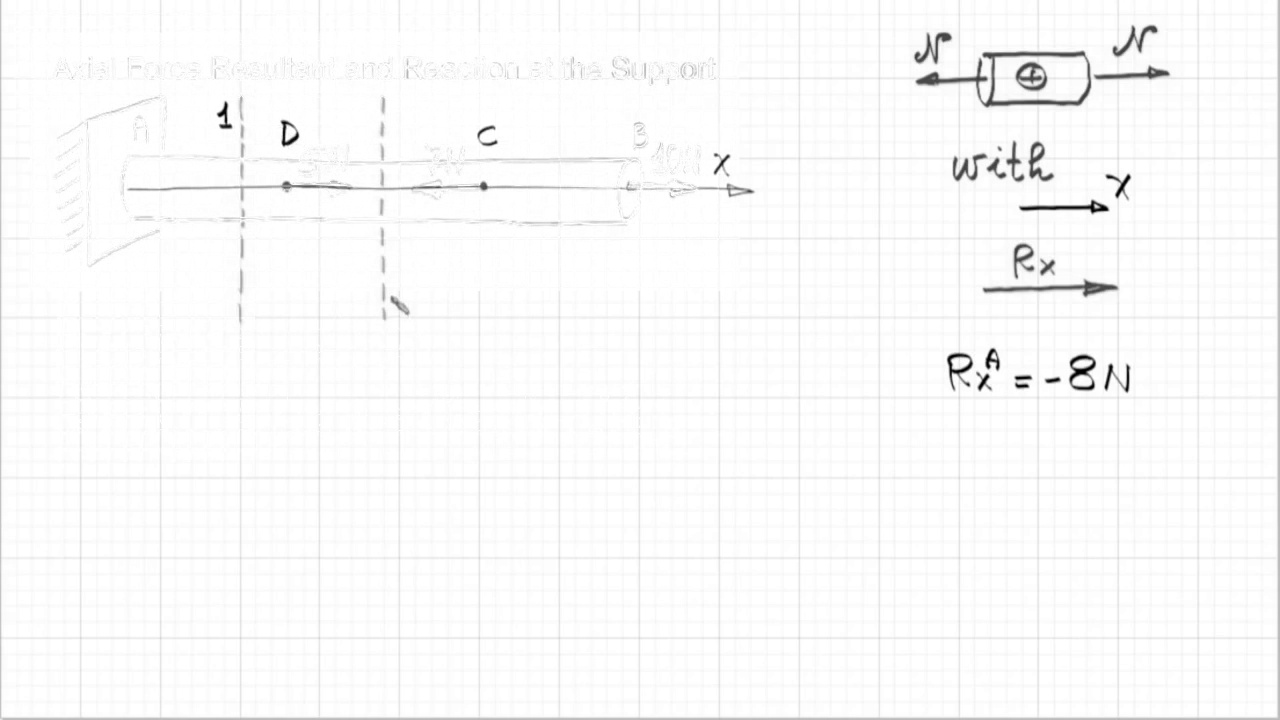 Axial Force Resultant and Reaction at the Support
N N
A 1 D C B
5N 7N 10N X
with
X
Rx
Rx^A = -8N